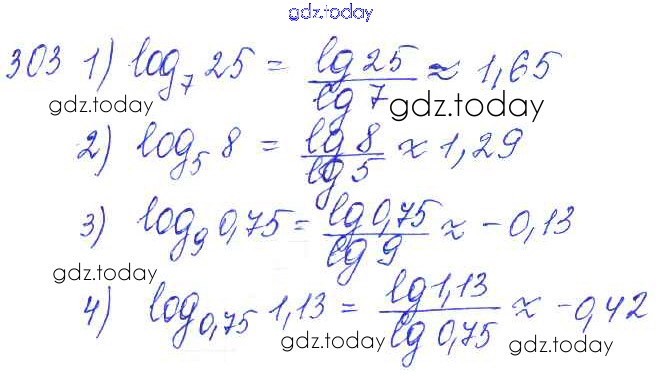 gdz.today
303 1) log₇ 25 = lg 25 / lg 7 ≈ 1,65
gdz.today gdz.today
2) log₅ 8 = lg 8 / lg 5 ≈ 1,29
3) log₉ 0,75 = lg 0,75 / lg 9 ≈ -0,13
gdz.today
4) log₀,₇₅ 1,13 = lg 1,13 / lg 0,75 ≈ -0,42
gdz.today gdz.today